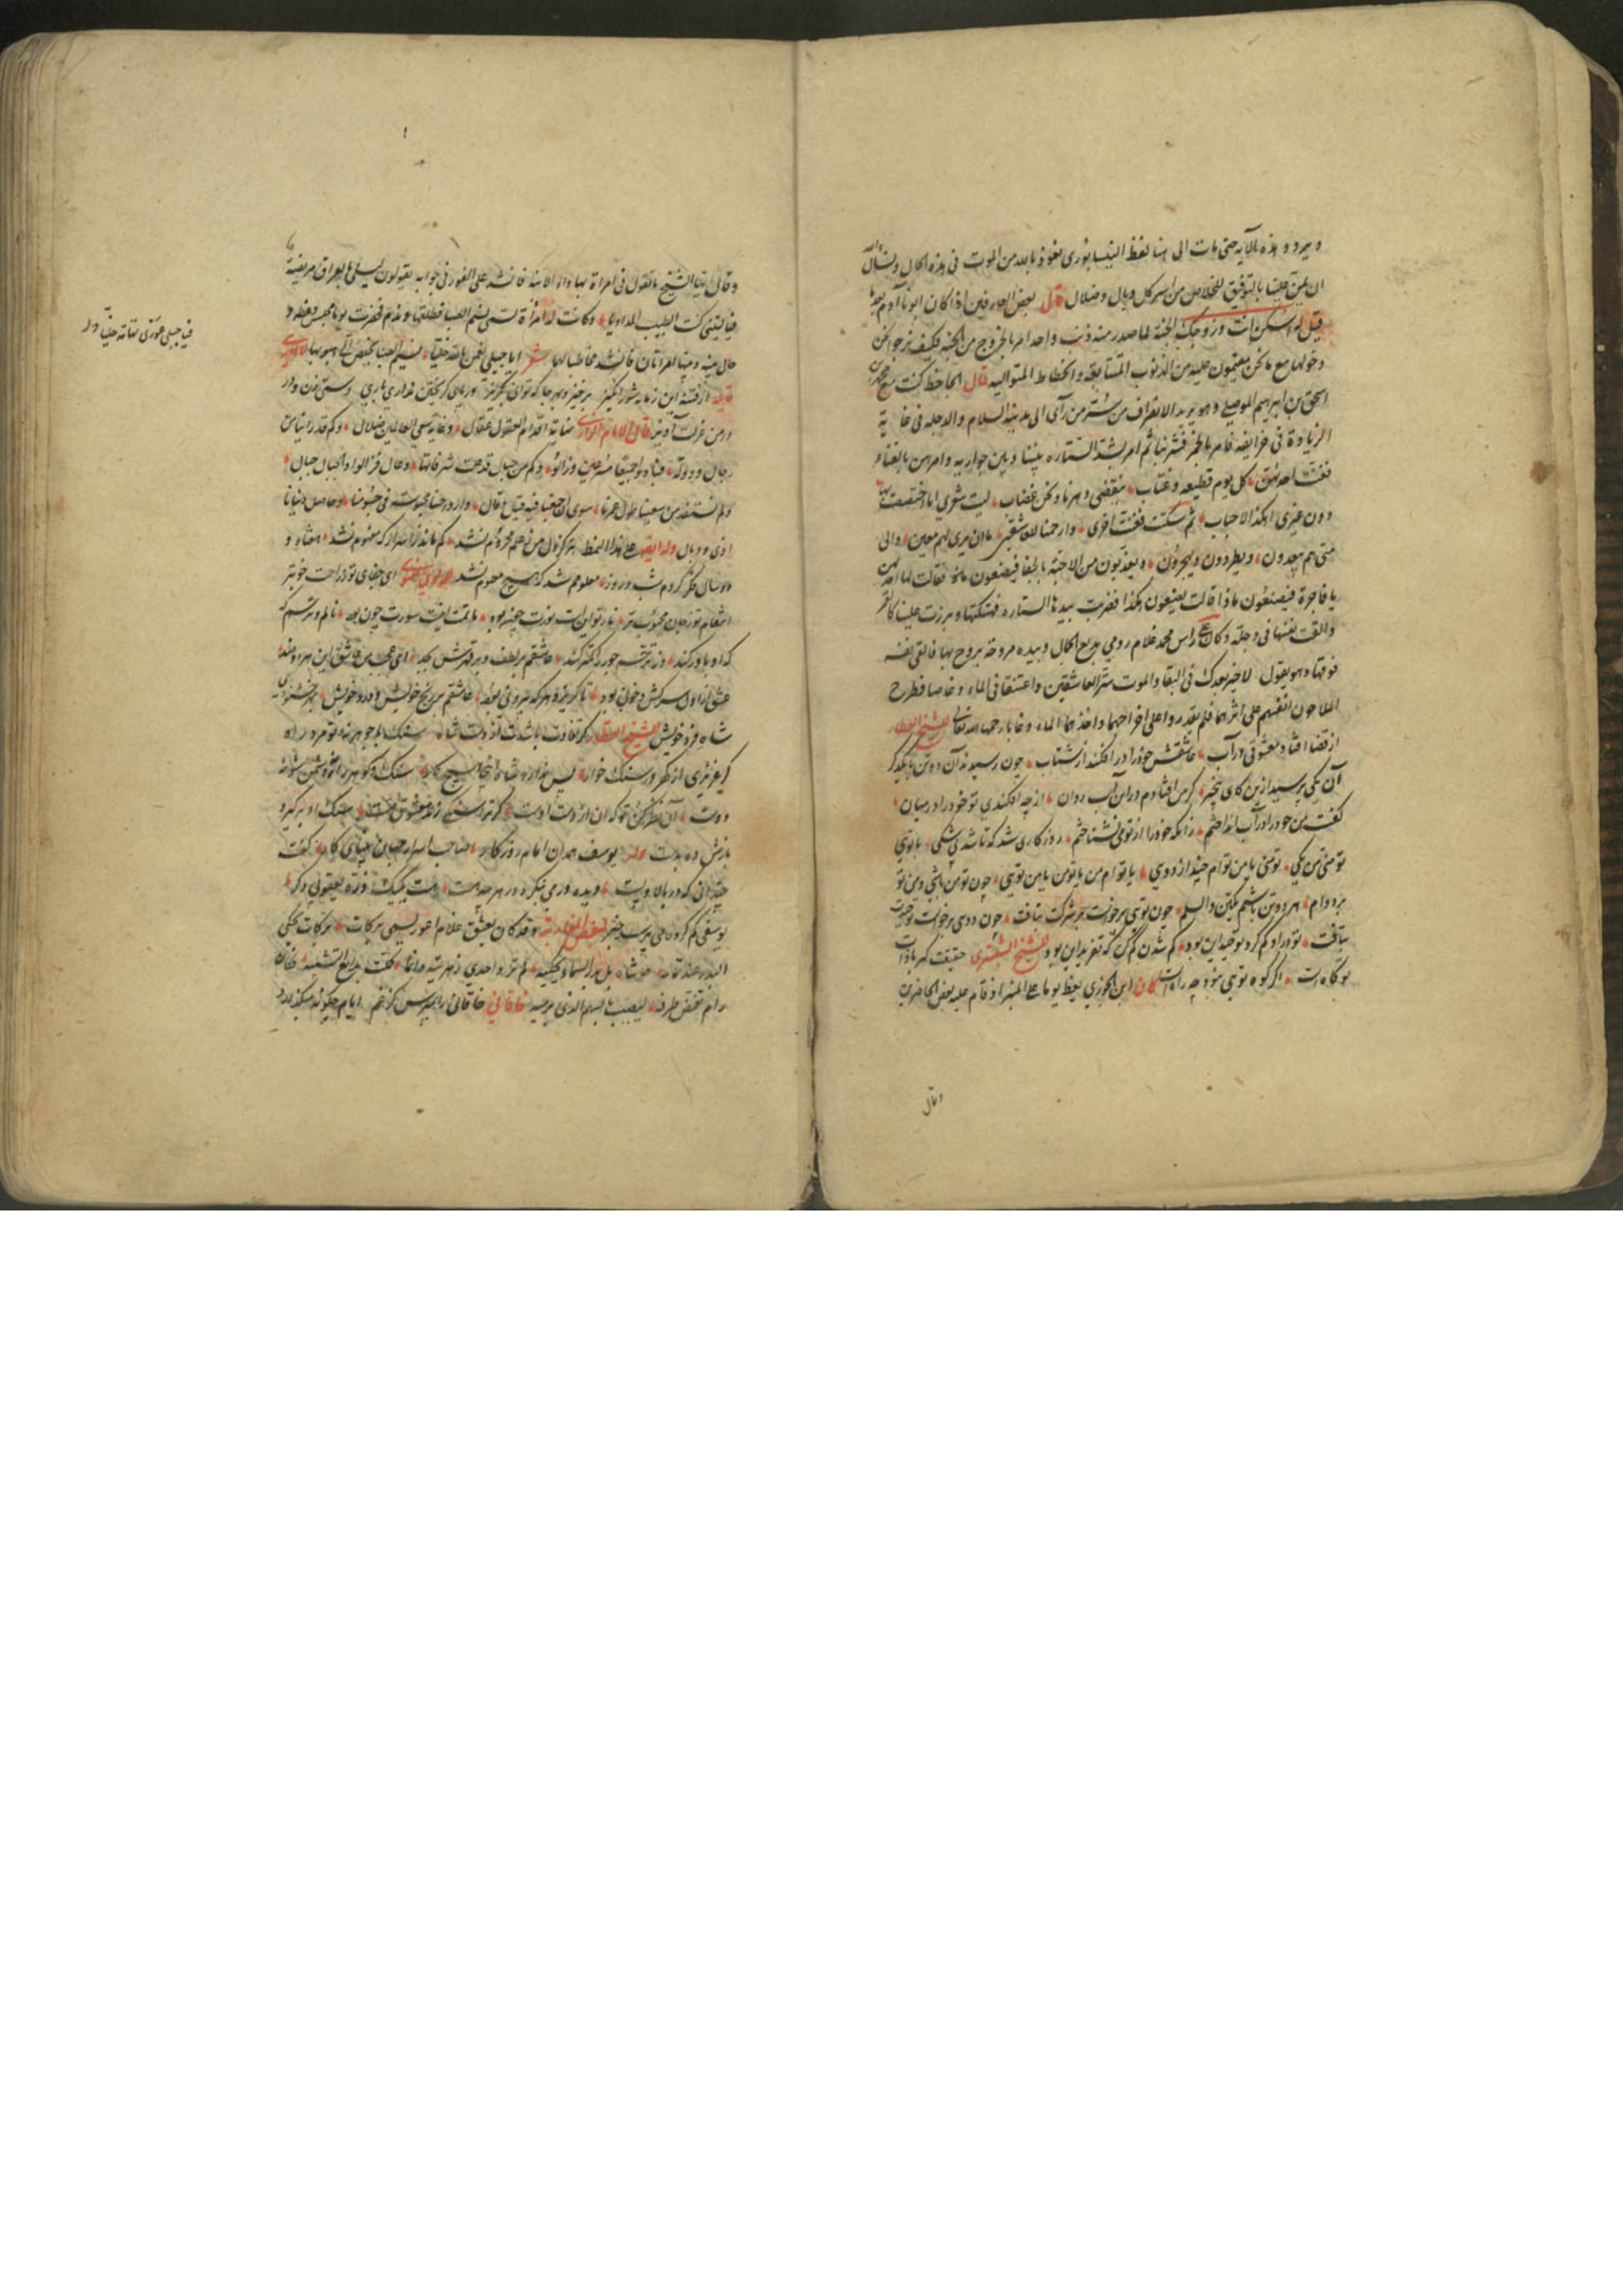 ويردد هذه الآية حتى مات الى هنا لفظ النيسابوري نعوذ بالله من الموت في هذه الحال ونسأل الله
ان يمن علينا بالتوفيق للخلاص من اسر كل وبال وضلال قال بعض العارفين اذا كان ابونا آدم بعد ما
قيل له اسكن انت وزوجك الجنة لما صدر منه ذنب واحد امر بالخروج من الجنة فكيف نرجوا نحن
دخولها مع ما نحن مقيمون عليه من الذنوب المتتابعة والخطايا المتوالية قال الجاحظ كنت مع محمد بن
اسحق بن ابراهيم الموصلي وهو يريد الانصراف من سر من رأى الى مدينة السلام والدجلة في غاية
الزيادة فامر بالخمر فشربنا ثم امر بشد الستارة بيننا وبين جواريه وامرهن بالغناء
فغنت احديهن كل يوم قطيعة وعتاب ينقضي دهرنا ونحن غضاب ليت شعري انا اختصصت بهذا
دون غيري ام هكذا الاحباب ثم سكتت فغنت اخرى وارحمتا للعاشقين ما ان يرى لهم معين والى
متى هم يبعدون ويطردون ويهجرون ويعذبون من الاحبة بالجفا فيصنعون ماذا فقالت لها احديهن
يا فاجرة فيصنعون ماذا قالت يصنعون هكذا فضربت بيدها الستارة فهتكتها وبرزت علينا كالقمر
والقت نفسها في دجلة وكان على راس محمد غلام رومي بديع الجمال وبيده مروحة يروح بها فالقى نفسه
فوقها وهو يقول لا خير بعدك في البقا والموت ستر العاشقين واعتنقا في الماء وغاصا فطرح
الملاحون انفسهم على اثرهما فلم يقدروا على اخراجهما واخذهما الماء وغابا رحمهما الله تعالى للشيخ العطار
از قضا افتاد معشوقى در آب عاشقش خود را در افكند از شتاب چون رسيدند آن دو تن با يكدگر
آن يكى پرسيد ازين كاى بيخبر گر من افتادم در اين آب روان از چه افكندى تو خود را در ميان
گفت من خود را در آب انداختم زانكه خود را از تو مى نشناختم روزگارى شد كه تا شد بى شكى با توئى
تو منى من يكى تو منى يا من توام چند از دوى يا توام من يا تو من يا من توئى چون تو من باشى و من تو
بر دوام هر دو تن باشيم يكتن والسلام چون توئى برخاست شركت نيافت چون دوى برخاست توحيدت
بتافت تو در او گم گرد توحيد اين بود گم شدن گم كن كه تفريد اين بود للشيخ الشبسترى حقيقت كهربا ذات
تو كاه است اگر كوه توئى نبود چه راه است كان ابن الجوزي يعظ يوما على المنبر اذ قام عليه بعض الحاضرين
وقال
وقال ايها الشيخ ما تقول في امرأة بها داء الابنة فانشد على الفور في جوابه يقولون ليلى بالعراق مريضة
فيا ليتني كنت الطبيب المداويا وكانت له امرأة تسمى نسيم الصبا فطلقها وندم فحضرت يوما مجلس وعظه و
حال بينه وبينها امرأتان فانشد مخاطبا لهما شعر ايا جبلي نعمان بالله خليا نسيم الصبا يخلص الي هبوبها
از فتنه اين زمانه شورانگيز برخيز و بهر جا كه توانى بگريز ور پاى گريختن ندارى بارى دستى زن و در
دامن عزلت آويز قال الامام الرازي نهاية اقدام العقول عقال وغاية سعي العالمين ضلال وكم قد رأينا من
رجال ودولة فبادوا جميعا مسرعين وزالوا وكم من جبال قد علت شرفاتها رجال فزالوا والجبال جبال
ولم نستفد من سعينا طول عمرنا سوى ان جمعنا فيه قيل وقال وارواحنا محبوسة في جسومنا وحاصل دنيانا
اذى ووبال وله ايضا على هذا النمط هرگز دل من ز علم محروم نشد كم ماند ز اسرار كه مفهوم نشد هفتاد و
دو سال فكر كردم شب و روز معلومم شد كه هيچ معلوم نشد للمولوي المعنوي اى جفاى تو ز راحت خوبتر
انتقام تو ز جان محبوبتر نار تو اين است نورت چون بود ماتمت اينست سورت چون بود نالم و ترسم كه
كه او باور كند وز ترحم جور را كمتر كند عاشقم بر لطف و بر قهرش بجد اى عجب من عاشق اين هر دو ضد
عشق از اول سركش و خونى بود تا گريزد هر كه بيرونى بود عاشقم بر رنج خويش و درد خويش بهر خشنودى
شاه فرد خويش للشيخ العطار گر تفاوت باشدت از دست شاه سنگ يا گوهر نه تو مرد راه
گر عزيزى از گهر از سنگ خوار پس ندارد شاه اينجا هيچ كار سنگ و گوهر را نه دشمن شو نه
دوست آن نظر كن تو كه آن از دست اوست گر ترا سنگى زند معشوق مست به كه از غيرى
يوسف همدان امام روزگار صاحب اسرار جهان بيناى كار گفت
چندانى كه در بالا و پست ديده ور مى بنگرد در هر چه هست هست يك يك ذره يعقوبى دگر
يوسفى گم كرده مى پرسد خبر وقد كان يعشق غلام اعور يسمى بركات بركات يحكي
البدر عند تمامه حاشاه بل بدر السماء يحكيه
رام تغمض طرفه ليصيب بالسهم الذي يرميه خاقاني خاقانى را مپرس كز غم ايام چگونه ميگذارد
فيا جبلي غوري تهامة خليا